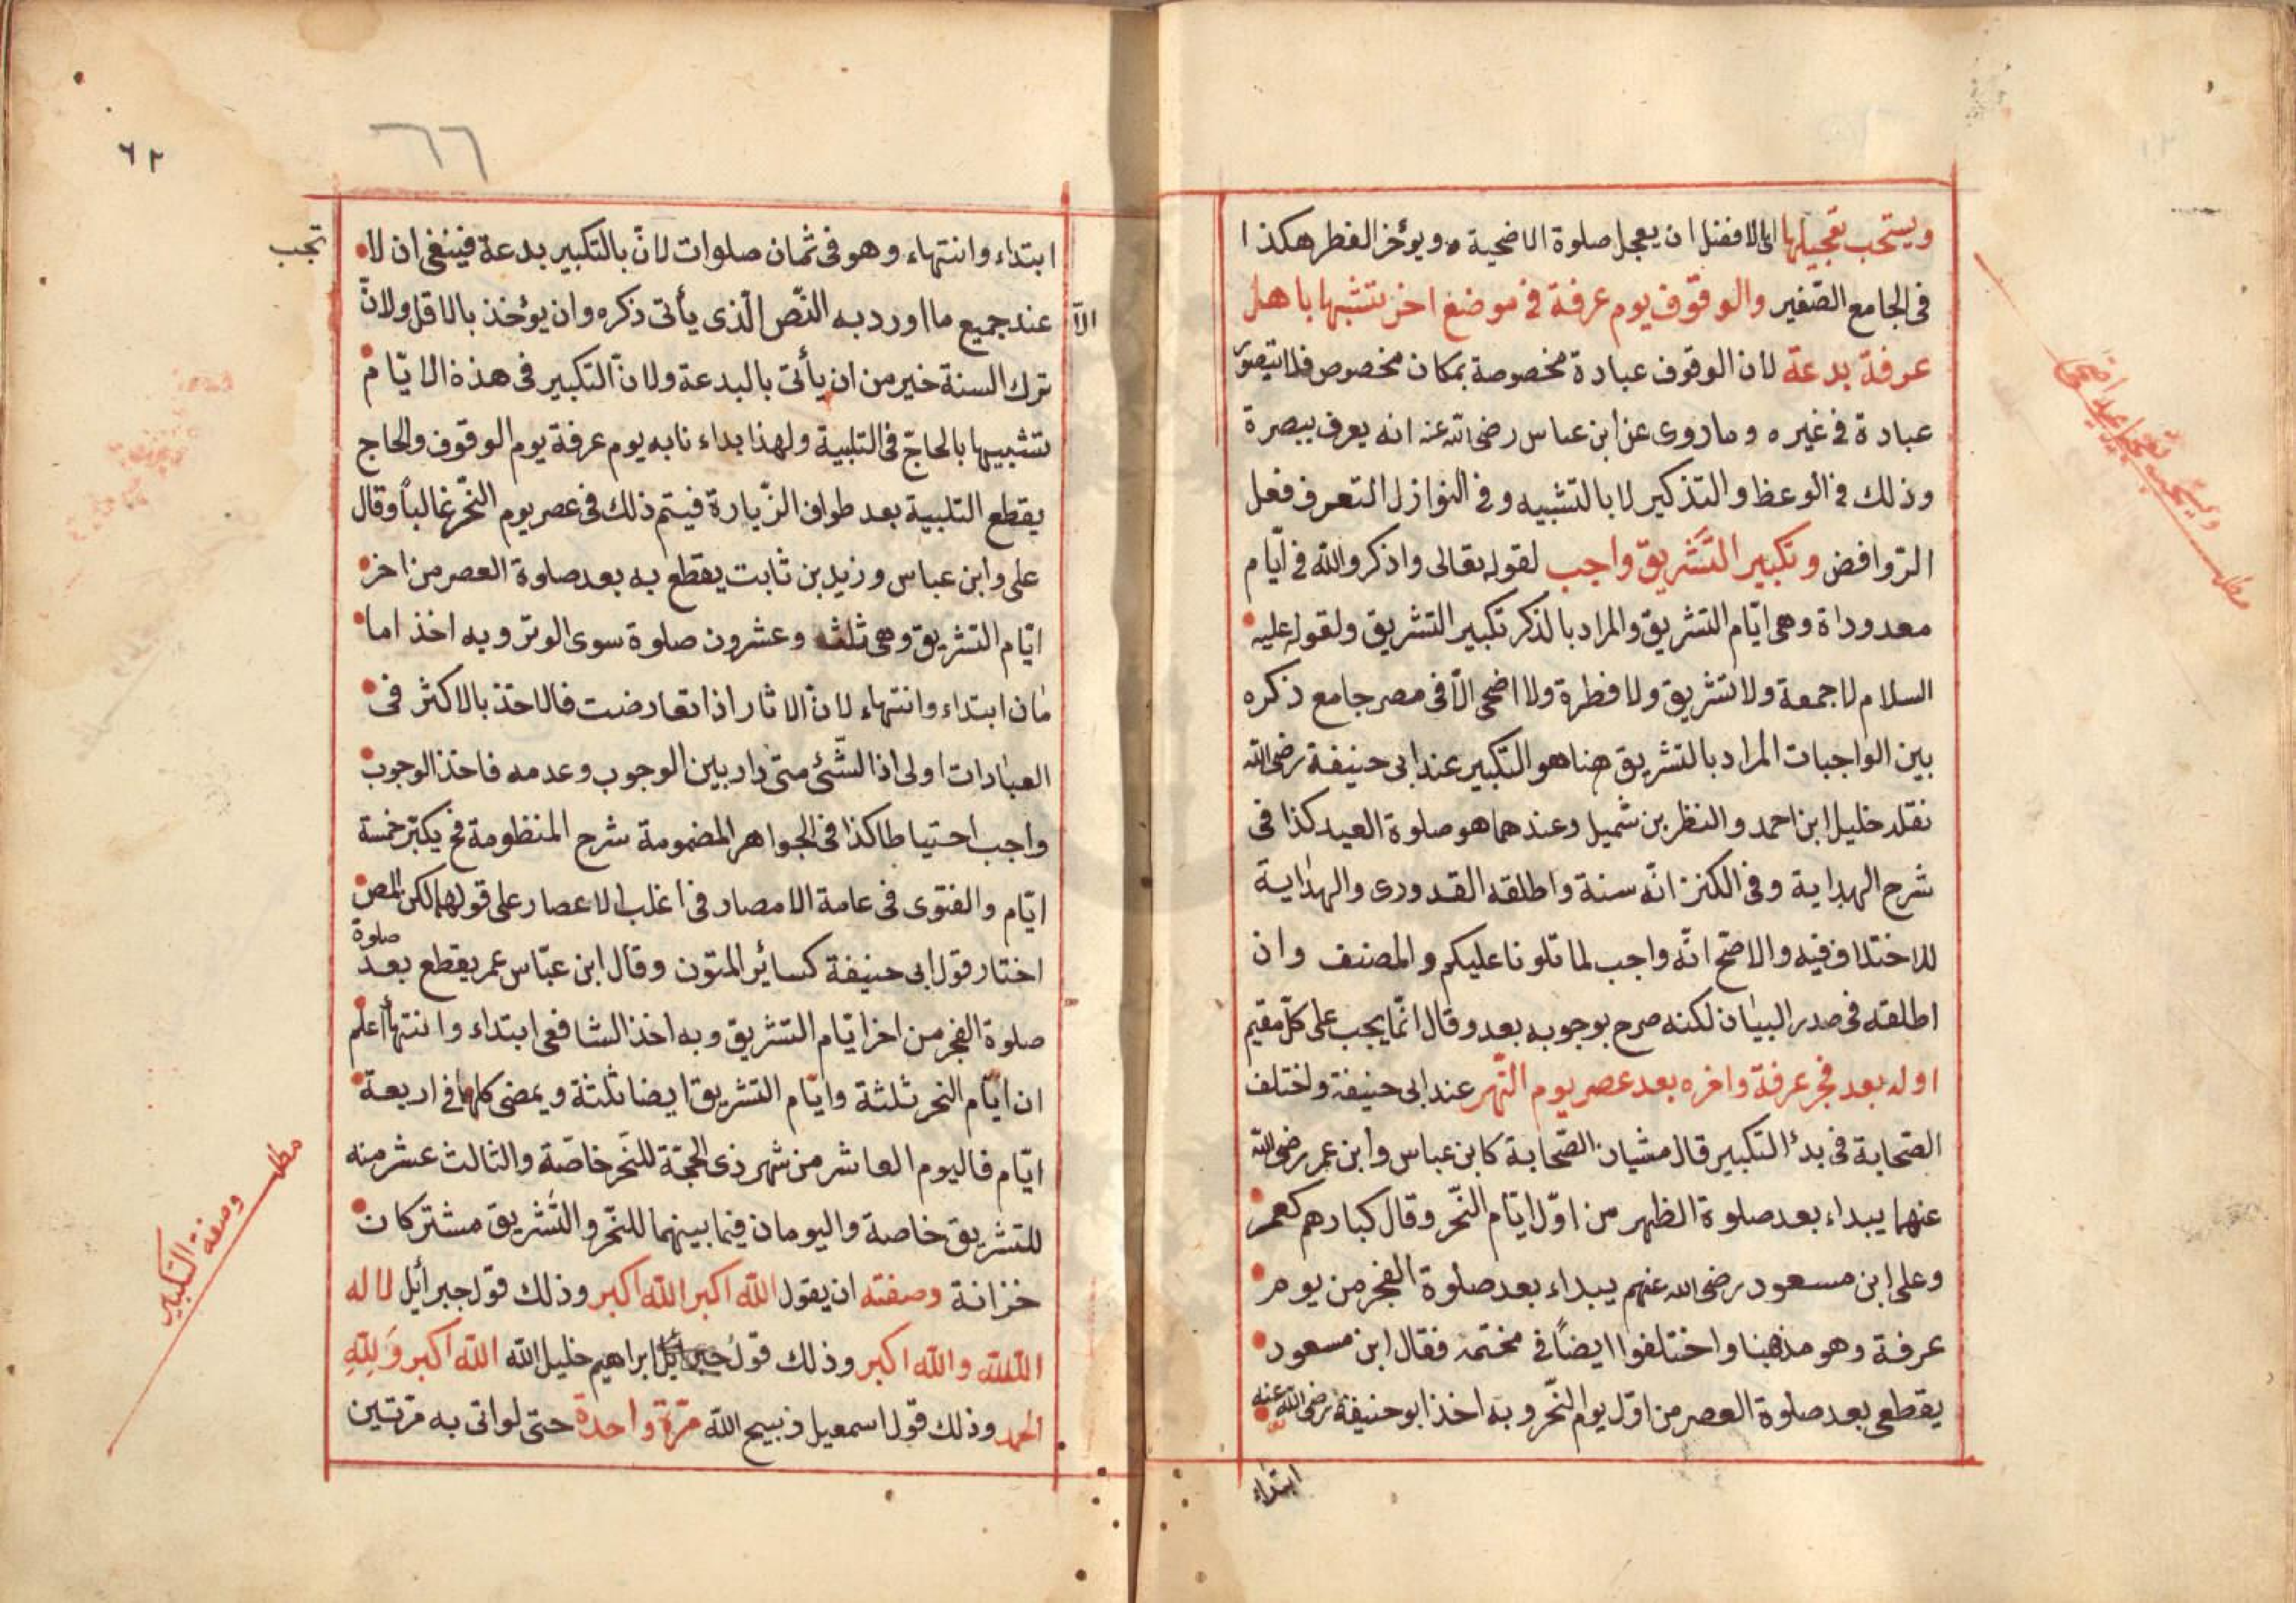 ويستحب تعجيلها اى الافضل ان يعجل صلوة الاضحية ه ويؤخر الفطر هكذا
فى الجامع الصغير والوقوف يوم عرفة فى موضع اخر تشبها باهل
عرفة بدعة لان الوقوف عبادة مخصوصة بمكان مخصوص فلا يتصور
عبادة فى غيره وما روى عن ابن عباس رضى الله عنه انه يعرف ببصرة
وذلك فى الوعظ والتذكير لا بالتشبيه وفى النوازل التعرف فعل
الروافض وتكبير التشريق واجب لقوله تعالى واذكروالله فى ايام
معدوداة وهى ايام التشريق والمراد بالذكر تكبير التشريق ولقوله عليه
السلام لا جمعة ولا تشريق ولا فطرة ولا اضحى الا فى مصر جامع ذكره
بين الواجبات المراد بالتشريق هنا هو التكبير عند ابى حنيفة رضى الله
نقله خليل ابن احمد والنظر بن شميل وعندهما هو صلوة العيد كذا فى
شرح الهداية وفى الكنز انه سنة واطلقه القدورى والهداية
للاختلاف فيه والاصح انه واجب لما تلونا عليكم والمصنف وان
اطلقه فى صدر البيان لكنه صرح بوجوبه بعد وقال انما يجب على كل مقيم
اوله بعد فجر عرفة واخره بعد عصر يوم النهر عند ابى حنيفة واختلف
الصحابة فى بدئ التكبير قال مشيان الصحابة كابن عباس وابن عمر رضى الله
عنهما يبداء بعد صلوة الظهر من اول ايام النحر وقال كبارهم كعمر
وعلى ابن مسعود رضى الله عنهم يبداء بعد صلوة الفجر من يوم
عرفة وهو مذهبنا واختلفوا ايضا فى مختمه فقال ابن مسعود
يقطعى بعد صلوة العصر من اول يوم النحر وبه اخذ ابو حنيفة رضى الله عنه
ابتداء
مطلب ويستحب تعجيل عيد اضحى
٦٢
٦٦
ابتداء وانتهاء وهو فى ثمان صلوات لان بالتكبير بدعة فينبغى ان لا تجب
الا عند جميع ما اورد به النص الذى يأتى ذكره وان يؤخذ بالاقل ولان
ترك السنة خير من ان يأتى بالبدعة ولان التكبير فى هذة الايام
تشبيها بالحاج فى التلبية ولهذا بداء نا به يوم عرفة يوم الوقوف والحاج
يقطع التلبية بعد طواف الزيارة فيتم ذلك فى عصر يوم النحر غالبا وقال
على وابن عباس وزيد بن ثابت يقطع به بعد صلوة العصر من اخر
ايام التشريق وهى ثلث وعشرون صلوة سوى الوتر وبه اخذ اما
مان ابتداء وانتهاء لان الاثار اذا تعارضت فالاخذ بالاكثر فى
العبادات اولى اذ الشئ متى دار بين الوجوب وعدمه فاخذ الوجوب
واجب احتياطا كذا فى الجواهر المضمومة شرح المنظومة فح يكبر خمسة
ايام والفتوى فى عامة الامصار فى اغلب الاعصار على قولهما لكن المص
اختار قول ابى حنيفة كسائر المتون وقال ابن عباس عمر يقطع بعد صلوة
صلوة الفجر من اخر ايام التشريق وبه اخذ الشافعى ابتداء وانتهاء اعلم
ان ايام النحر ثلثة وايام التشريق ايضا ثلثة ويمضى كلها فى اربعة
ايام فاليوم العاشر من شهر ذى الحجة للنحر خاصة والثالث عشر منه
للتشريق خاصة واليومان فيما بينهما للنحر والتشريق مشتركان
خزانة وصفته ان يقول الله اكبر الله اكبر وذلك قول جبرأيل لا اله
الا الله والله اكبر وذلك قول ابراهيم خليل الله الله اكبر ولله
الحمد وذلك قول اسمعيل ذبيح الله مرة واحدة حتى لو اتى به مرتين
مطلب وصفة التكبير